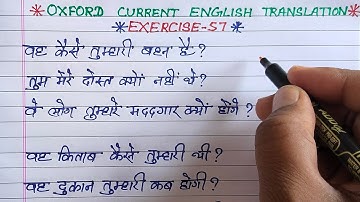 *OXFORD CURRENT ENGLISH TRANSLATION*
*EXERCISE-57*
वह कैसे तुम्हारी बहन है?
तुम मेरे दोस्त क्यों नहीं थे?
वे लोग तुम्हारे मददगार क्यों होंगे?
वह किताब कैसे तुम्हारी थी?
वह दुकान तुम्हारी कब होगी?